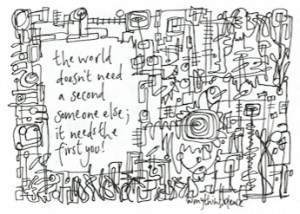 the world
doesn't need
a second
someone else;
it needs the
first you!